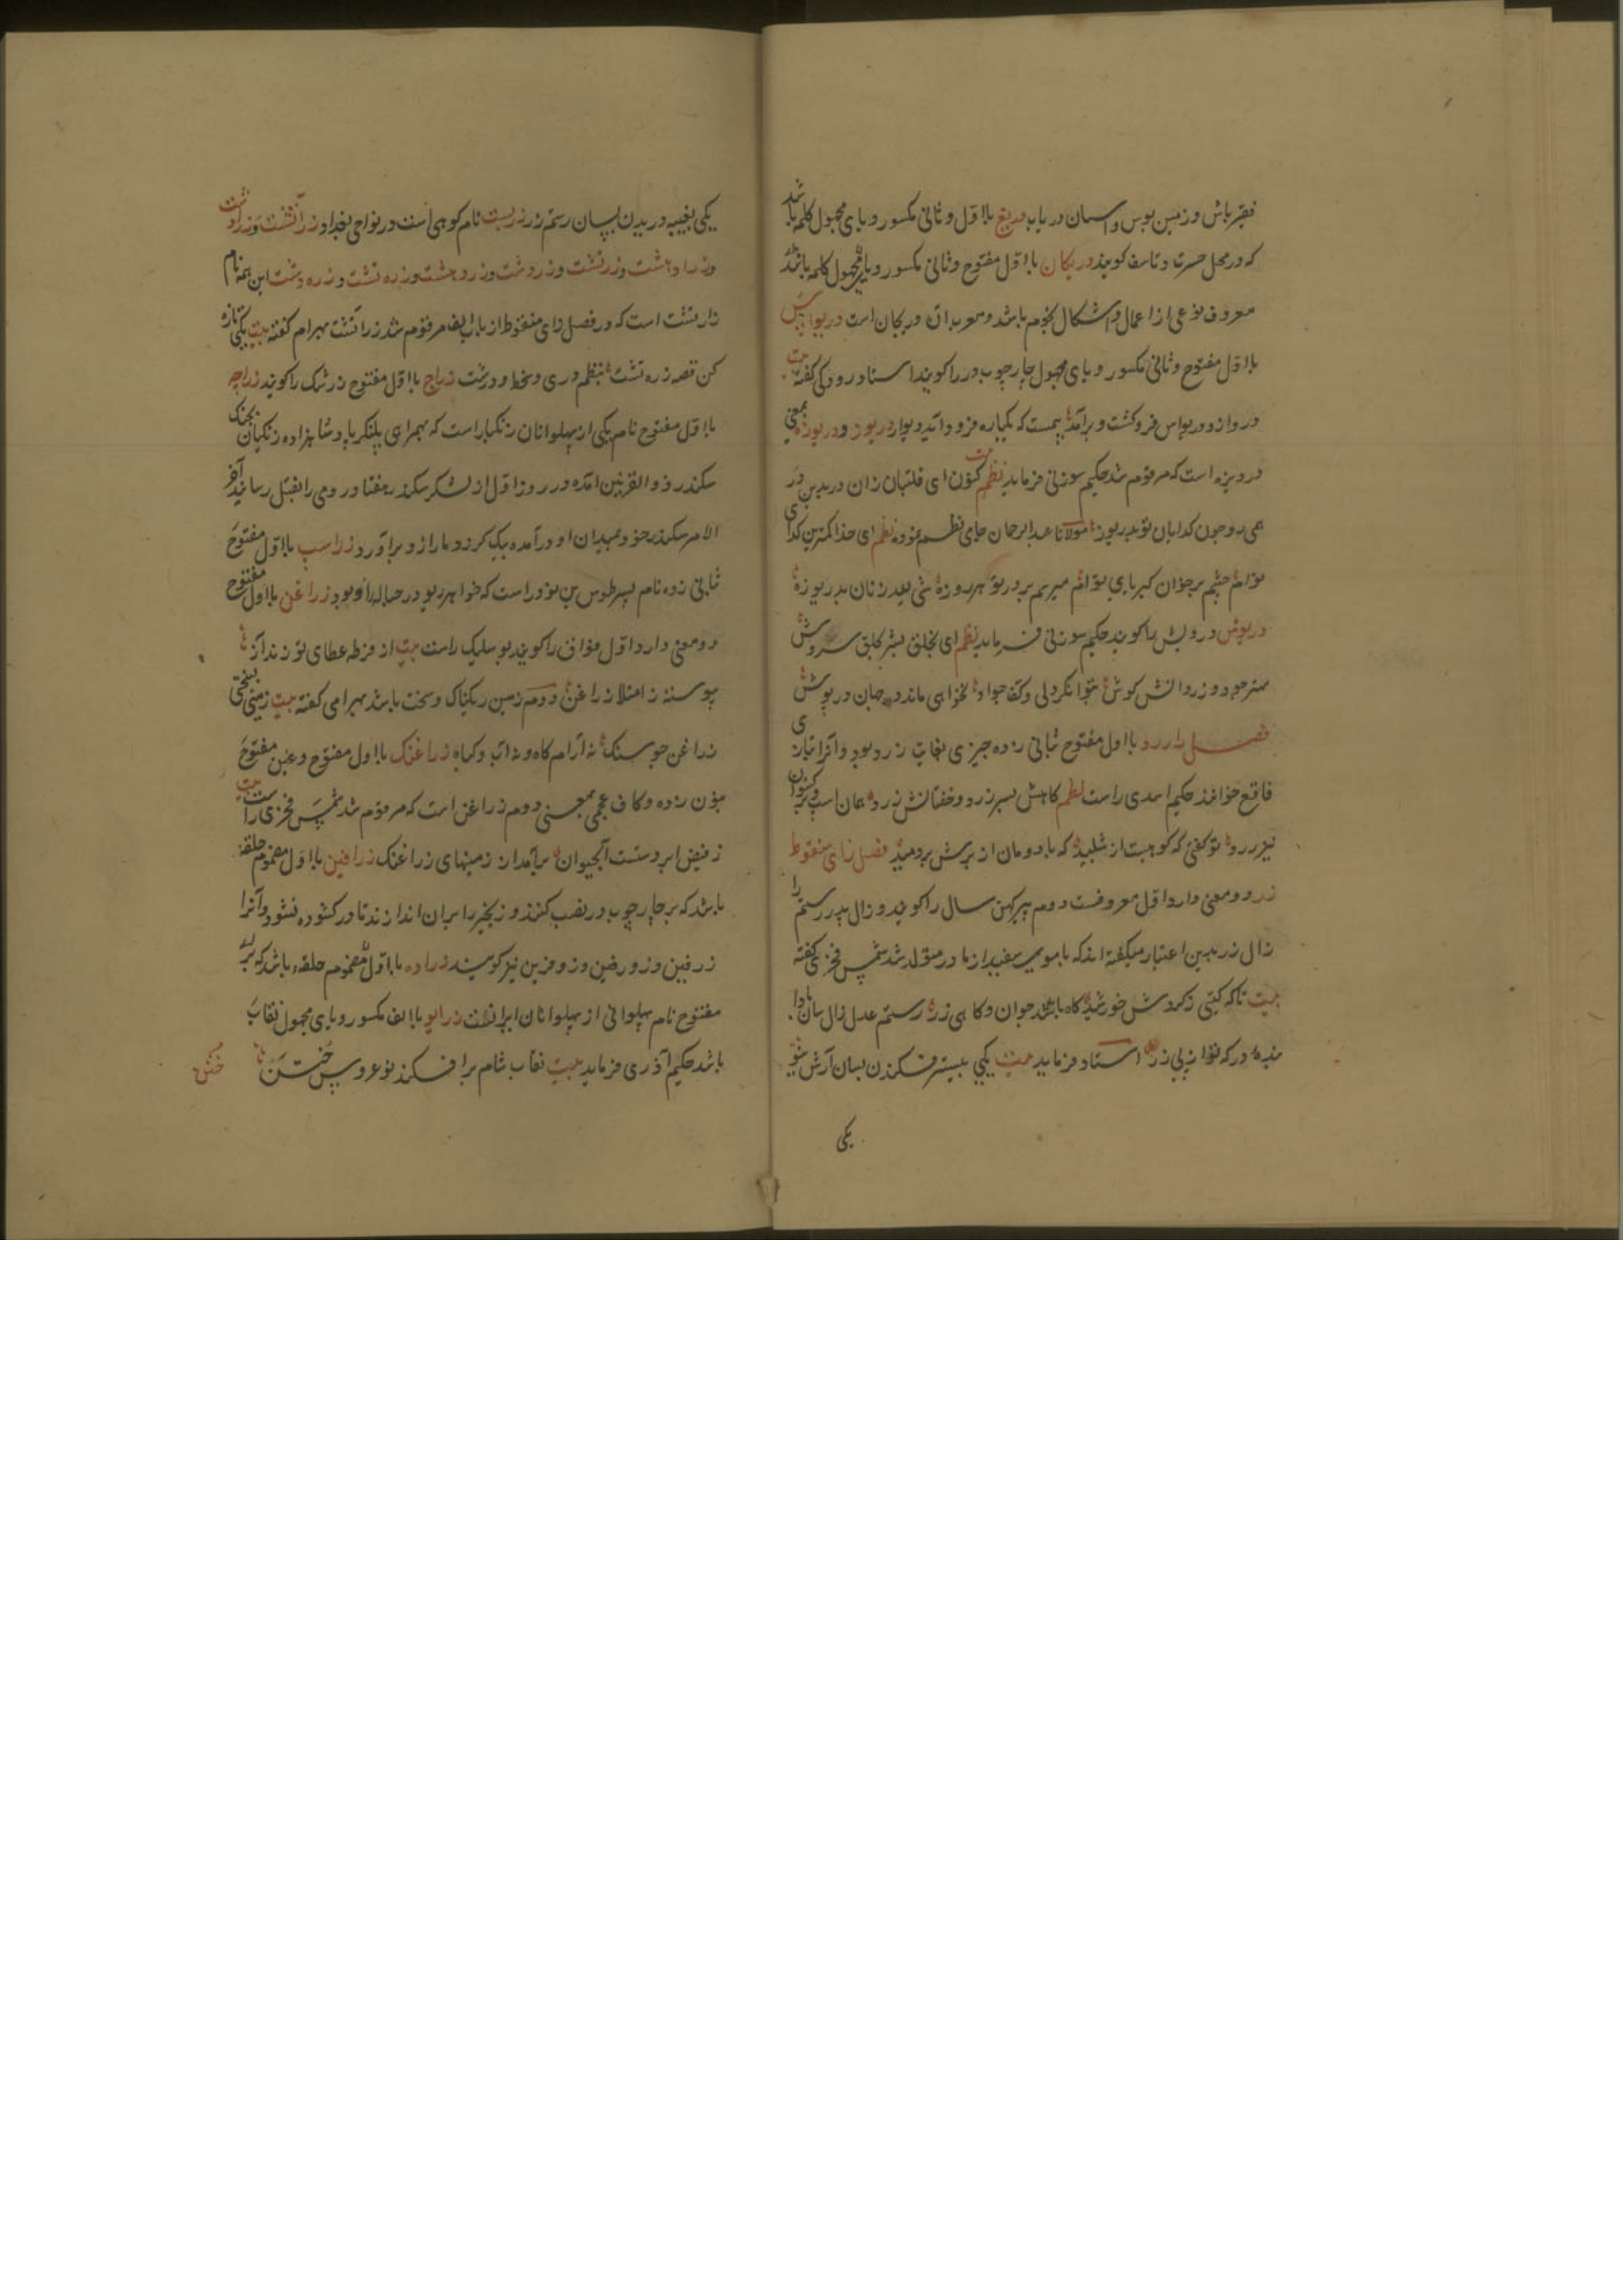 فقر باش و زمین بوس و اسمان دریاب دریغ با اول و ثانی مکسور و یای مجهول کلمه باشد
که در محل حسرت و تاسف کویند دریکان با اول مفتوح و ثانی مکسور و یای مجهول کلمه باشد
معروف نوعی از اعمال و اشکال نجوم باشد و معرب ان دریجان است دریواس
با اول مفتوح و ثانی مکسور و یای مجهول چارچوب در را کویند استاد رودکی کفته بیت
دروازه و دریواس فروکشت و برآمد بیمست که یکباره فرود آید دیوار دریوز و دریوزه بمعنی
درویزه است که مرقوم شد حکیم سوزنی فرماید نظم ای قلتبان زان در بدین در
همی رو چون کدایان تو بدریوز مولانا عبدالرحمان جامی نظم نموده نظم ای خدا کمترین کدای
توام چشم بر خوان کبریای توام میرم بر در تو هر روزه شی لله زنان بدریوزه
دریوش درویش را کویند حکیم سوزنی فرماید نظم ای بخلق بشر بخلق سروش
دو زر دانش کوش بتوانکردلی وکف جواد نخواهی ماند در جهان دریوش
فصل را رد با اول مفتوح ثانی زده چیزی بغایت زرد بود و آنرا بتازی
فاقع خوانند حکیم اسدی راست نظم کاهش بسر زرد و خفتانش زرد همان اسب و برکستوان
نیز زرد تو کفتی که کوهیست از شنبلید که باد دمان از برش بردمید فصل زای منقوط
زر دو معنی دارد اول معروفست دوم پیر کهن سال را کویند و زال پدر رستم را
زال زر بدین اعتبار میکفته اند که با موی سفید از مادر متولد شد شمس فخری کفته
بیت تاکه کیتی زکردش خورشید کاه باشد جوان و کاهی زر رستم عدل زال سان بادا
بنده درکه تو از پی زر استاد فرماید بیت یکی بیستر فسکندن بسان آرش شو
یکی
یکی بغیبه دریدن بسان رستم زر زربست نام کوهی است در نواحی بغداد زراتشت و زرادشت
و زرادهشت و زرتشت و زردشت و زردهشت و زره تشت و زره دشت این همه نام
زارتشت است که در فصل زای منقوط از باب الف مرقوم شد زراتشت بهرام کفته بیت یکی تازه
کن قصه زره تشت بنظم دری و بخط درشت زراج با اول مفتوح زرشک را کویند زراجه
با اول مفتوح نام یکی از پهلوانان زنکبار است که بهمراهی پلنکر پادشاهزاده زنکیان بجنک
سکندر ذوالقرنین آمده در روز اول از لشکر سکندر هفتاد رومی را بقتل رسانید آخر
الامر سکندر خود بمیدان او درآمده بیک کرز دمار از و برآورد زراسب با اول مفتوح
ثانی زده نام پسر طوس بن نوذر است که خواهر ریو در حباله او بود زراغن با اول مفتوح
دو معنی دارد اول فواق را کویند بوسلیک راست بیت از فرط عطای تو زند آز
پیوسته ز امتلا زراغن دوم زمین ریکناک و سخت باشد بهرامی کفته بیت زمینی بسختی
زراغن چو سنک نه آرام کاه و نه آب و کیاه زراغنک با اول مفتوح و غین مفتوح
بنون زده وکاف عجمی بمعنی دوم زراغن است که مرقوم شد شمس فخری راست بیت
ز فیض ابر دستت آبحیوان برآمد از زمینهای زراغنک زرافین با اول مضموم حلقه
باشد که بر چارچوب در نصب کنند و زنجیر را بران اندازند تا در کشوده نشود و آنرا
زرفین و زورفین و زوفرین نیز کویند زراده با اول مضموم حلقه باشد که بر
مفتوح نام پهلوانی از پهلوانان ایرانست زرایو با الف مکسور و یای مجهول نقاب
باشد حکیم آذری فرماید بیت نقاب شام برافسکند نوعروس ختن